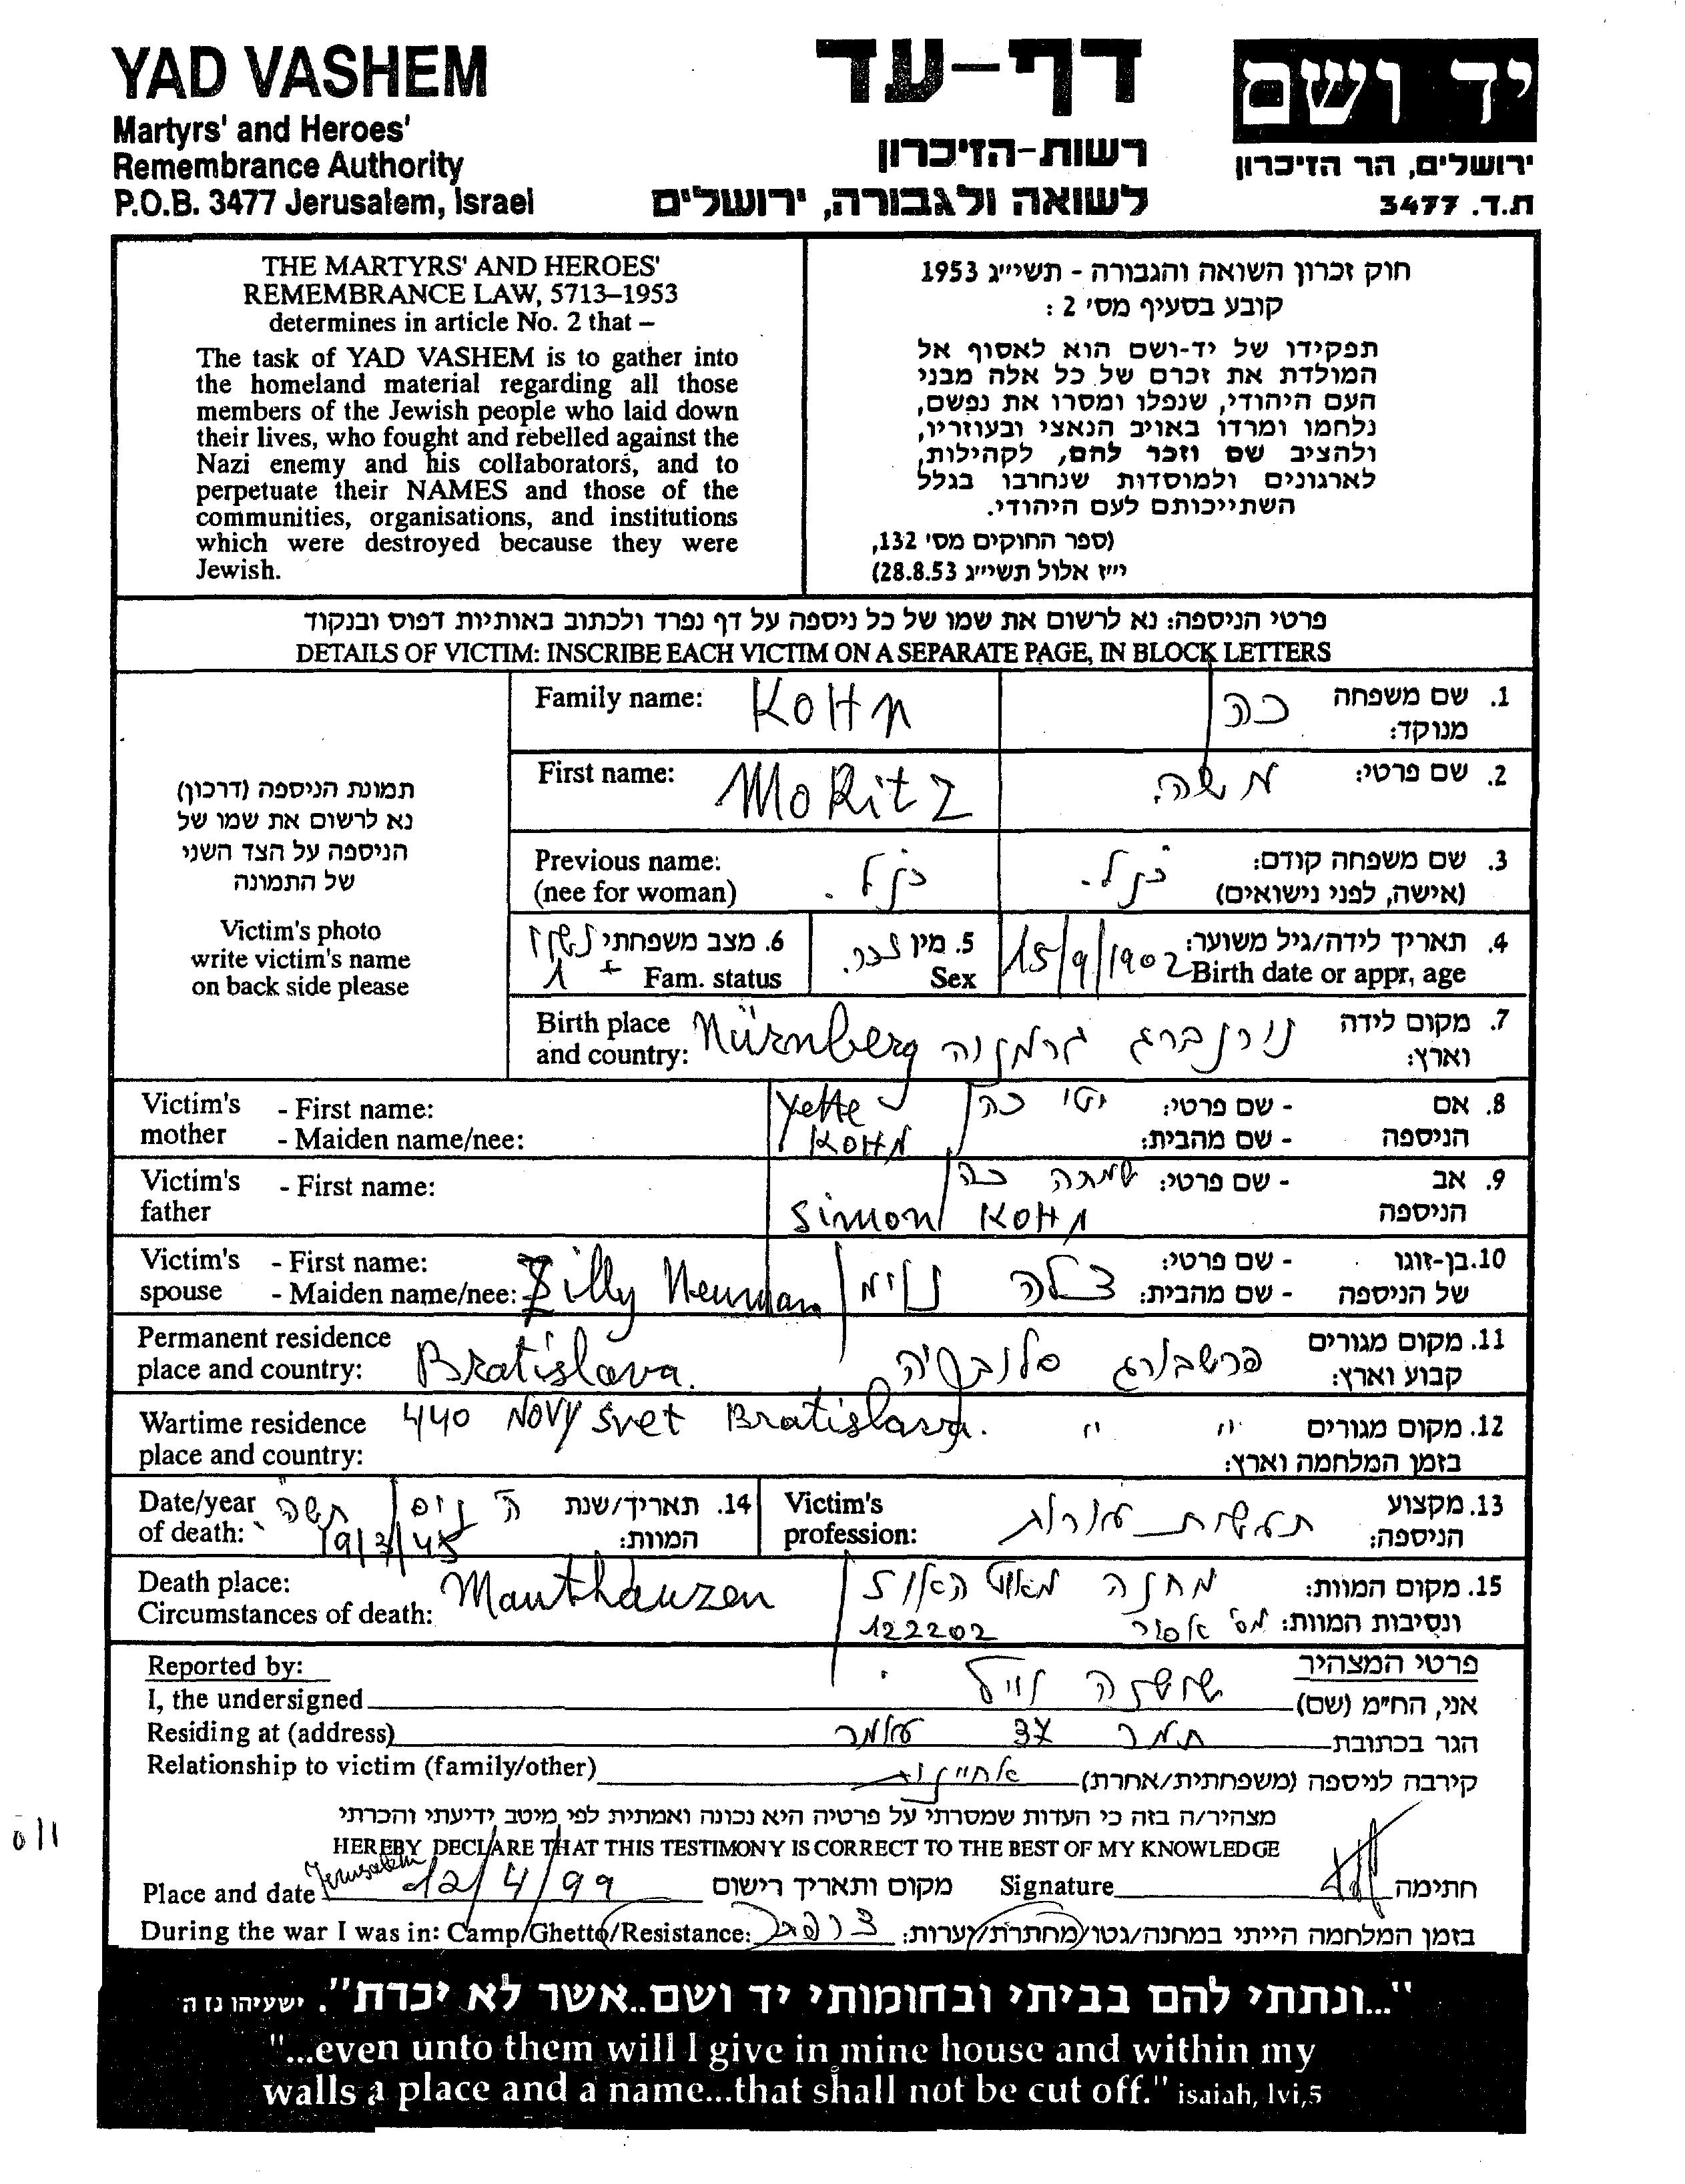 YAD VASHEM
Martyrs' and Heroes'
Remembrance Authority
P.O.B. 3477 Jerusalem, Israel
דף-עד
רשות-הזיכרון
לשואה ולגבורה, ירושלים
יד ושם
ירושלים, הר הזיכרון
ת.ד. 3477
THE MARTYRS' AND HEROES'
REMEMBRANCE LAW, 5713–1953
determines in article No. 2 that –
The task of YAD VASHEM is to gather into
the homeland material regarding all those
members of the Jewish people who laid down
their lives, who fought and rebelled against the
Nazi enemy and his collaborators, and to
perpetuate their NAMES and those of the
communities, organisations, and institutions
which were destroyed because they were
Jewish.
חוק זכרון השואה והגבורה - תשי״ג 1953
קובע בסעיף מס׳ 2 :
תפקידו של יד-ושם הוא לאסוף אל
המולדת את זכרם של כל אלה מבני
העם היהודי, שנפלו ומסרו את נפשם,
נלחמו ומרדו באויב הנאצי ובעוזריו,
ולהציב שם וזכר להם, לקהילות,
לארגונים ולמוסדות שנחרבו בגלל
השתייכותם לעם היהודי.
(ספר החוקים מס׳ 132,
י״ז אלול תשי״ג 28.8.53)
פרטי הניספה: נא לרשום את שמו של כל ניספה על דף נפרד ולכתוב באותיות דפוס ובנקוד
DETAILS OF VICTIM: INSCRIBE EACH VICTIM ON A SEPARATE PAGE, IN BLOCK LETTERS
תמונת הניספה (דרכון)
נא לרשום את שמו של
הניספה על הצד השני
של התמונה
Victim's photo
write victim's name
on back side please
Family name: KOHN כה 1. שם משפחה
מנוקד:
First name: MORitZ משה. 2. שם פרטי:
Previous name: כנ״ל. כנ״ל. 3. שם משפחה קודם:
(nee for woman) (אישה, לפני נישואים)
6. מצב משפחתי נשוי 5. מין זכר. 15/9/1902 4. תאריך לידה/גיל משוער:
Fam. status + 1 Sex Birth date or appr, age
Birth place Nürnberg נורנברג גרמניה 7. מקום לידה
and country: וארץ:
Victim's - First name: Yette יטי כה - שם פרטי: 8. אם
mother - Maiden name/nee: KOHN - שם מהבית: הניספה
Victim's - First name: שמחה כה - שם פרטי: 9. אב
father Simon KOHN הניספה
Victim's - First name: - שם פרטי: 10. בן-זוגו
spouse - Maiden name/nee: Zilly Neuman צלה - שם מהבית: של הניספה
Permanent residence 11. מקום מגורים
place and country: Bratislava. פרשבורג סלובקיה קבוע וארץ:
Wartime residence 440 NOVY Svet Bratislava. " " 12. מקום מגורים
place and country: בזמן המלחמה וארץ:
Date/year תשה 14. תאריך/שנת Victim's 13. מקצוע
of death: 19/3/45 המוות: profession: הניספה:
Death place: Mauthauzen מחנה מאוטהאוזן 15. מקום המוות:
Circumstances of death: 122202 מס׳ אסיר ונסיבות המוות:
Reported by: פרטי המצהיר
I, the undersigned שושנה וייל אני, הח״מ (שם)
Residing at (address) תמר 37 עומר הגר בכתובת
Relationship to victim (family/other) אחיינית קירבה לניספה (משפחתית/אחרת)
מצהיר/ה בזה כי העדות שמסרתי על פרטיה היא נכונה ואמתית לפי מיטב ידיעתי והכרתי
HEREBY DECLARE THAT THIS TESTIMONY IS CORRECT TO THE BEST OF MY KNOWLEDGE
Place and date Jerusalem 12/4/99 מקום ותאריך רישום Signature חתימה
During the war I was in: Camp/Ghetto/Resistance: צרפת בזמן המלחמה הייתי במחנה/גטו/מחתרת/יערות:
"...ונתתי להם בביתי ובחומותי יד ושם..אשר לא יכרת". ישעיהו נו ה
"...even unto them will I give in mine house and within my
walls a place and a name...that shall not be cut off." isaiah, lvi,5